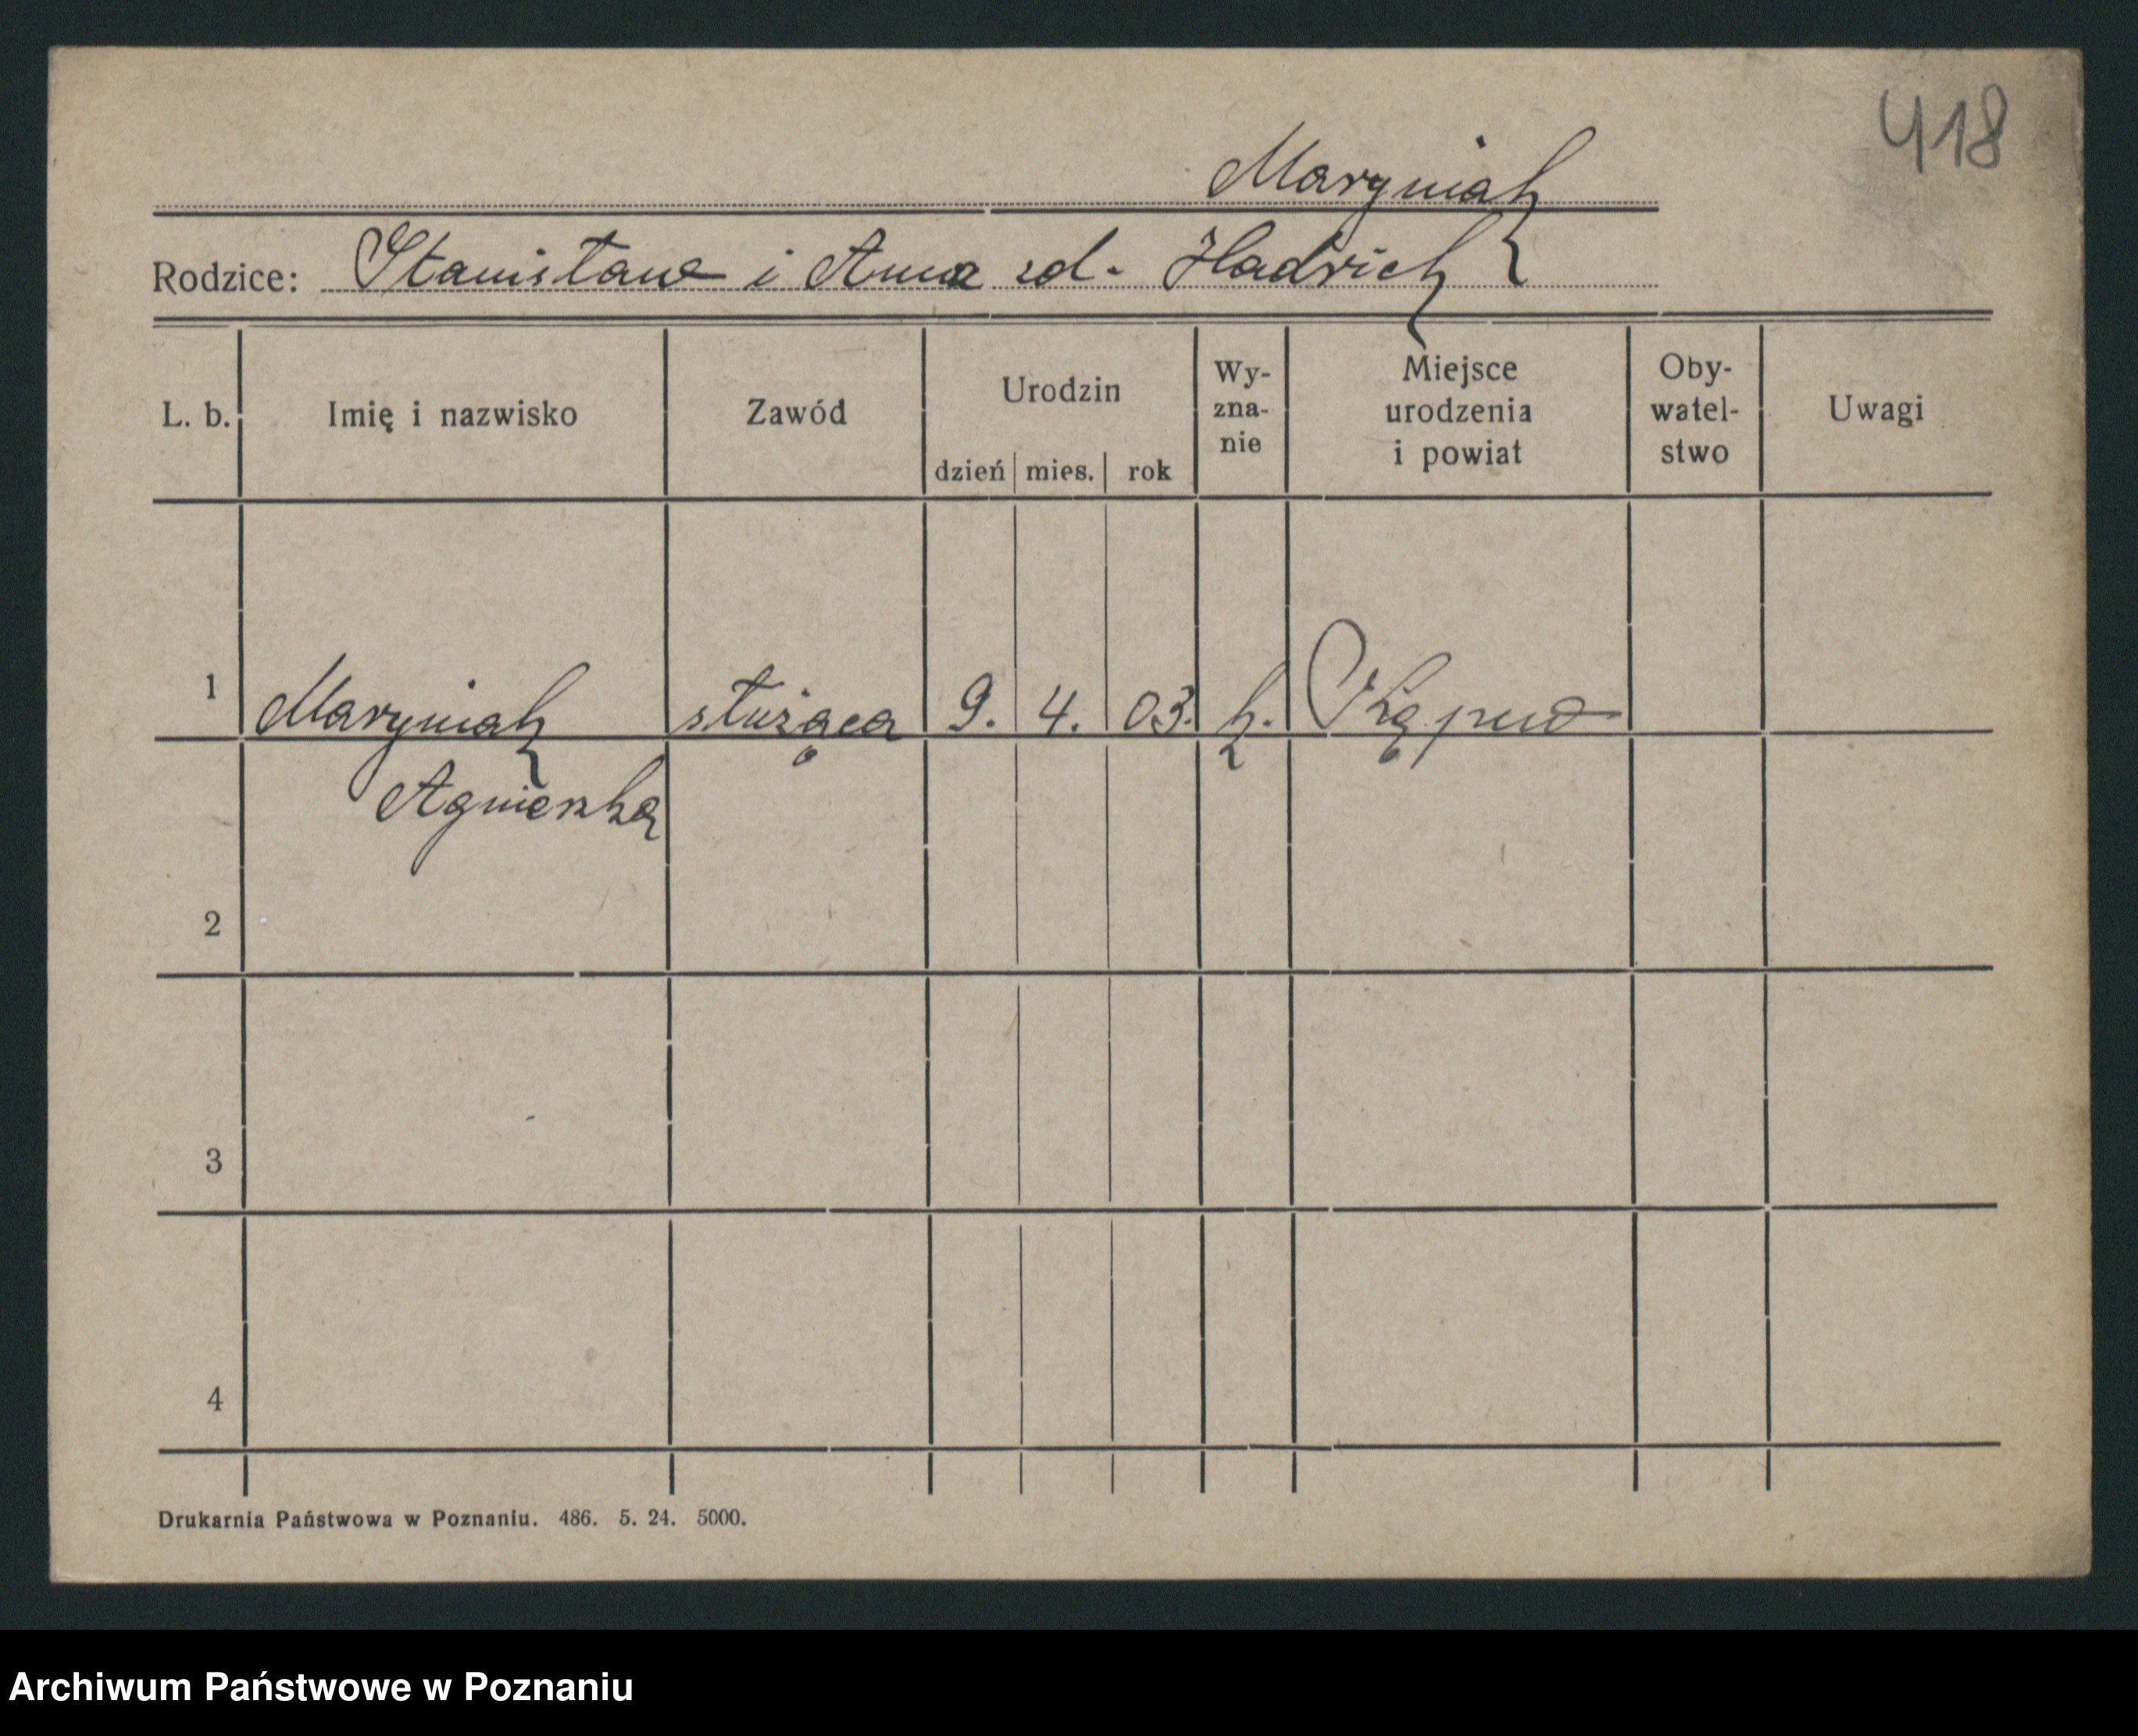 418
Maryniak
Rodzice: Stanisław i Anna zd. Hadrich
L. b. Imię i nazwisko Zawód Urodzin dzień mies. rok Wy-zna-nie Miejsce urodzenia i powiat Oby-watel-stwo Uwagi
1 Maryniak służąca 9. 4. 03. k.
Agnieszka
2
3
4
Drukarnia Państwowa w Poznaniu. 486. 5. 24. 5000.
Archiwum Państwowe w Poznaniu